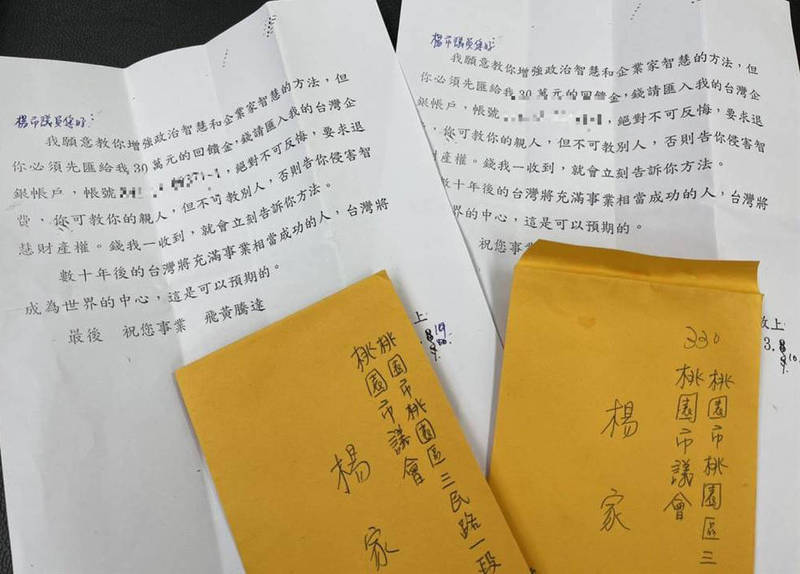 楊市議員您好:
我願意教你增強政治智慧和企業家智慧的方法，但
你必須先匯給我30萬元的回饋金，錢請匯入我的台灣企
銀帳戶，帳號，絕對不可反悔，要求退
費，您可教你的親人，但不可教別人，否則告你侵害智
慧財產權。錢我一收到，就會立刻告訴你方法。
數十年後的台灣將充滿事業相當成功的人，台灣將
成為世界的中心，這是可以預期的。
最後 祝您事業 飛黃騰達
上
楊市議員您好:
我願意教你增強政治智慧和企業家智慧的方法，但
你必須先匯給我30萬元的回饋金，錢請匯入我的台灣企
銀帳戶，帳號，絕對不可反悔，要求退
，您可教你的親人，但不可教別人，否則告你侵害智
產權。錢我一收到，就會立刻告訴你方法。
數十年後的台灣將充滿事業相當成功的人，台灣將
世界的中心，這是可以預期的。
祝您事
上
桃園市桃園區三民路一段
桃園市議會
楊家
330
桃園市桃園區三
桃園市議會
楊家